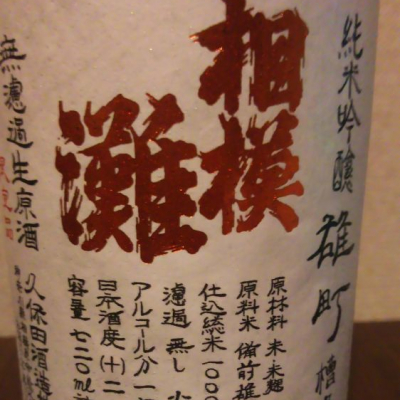 純米吟醸 雄町 槽
相模
灘
原材料 米 米麹
原料米 備前雄
仕込総米一〇〇
濾過 無し
アルコール分 一
日本酒度(十)二
容量 七二〇ml
無濾過生原酒
限定品
久保田酒造